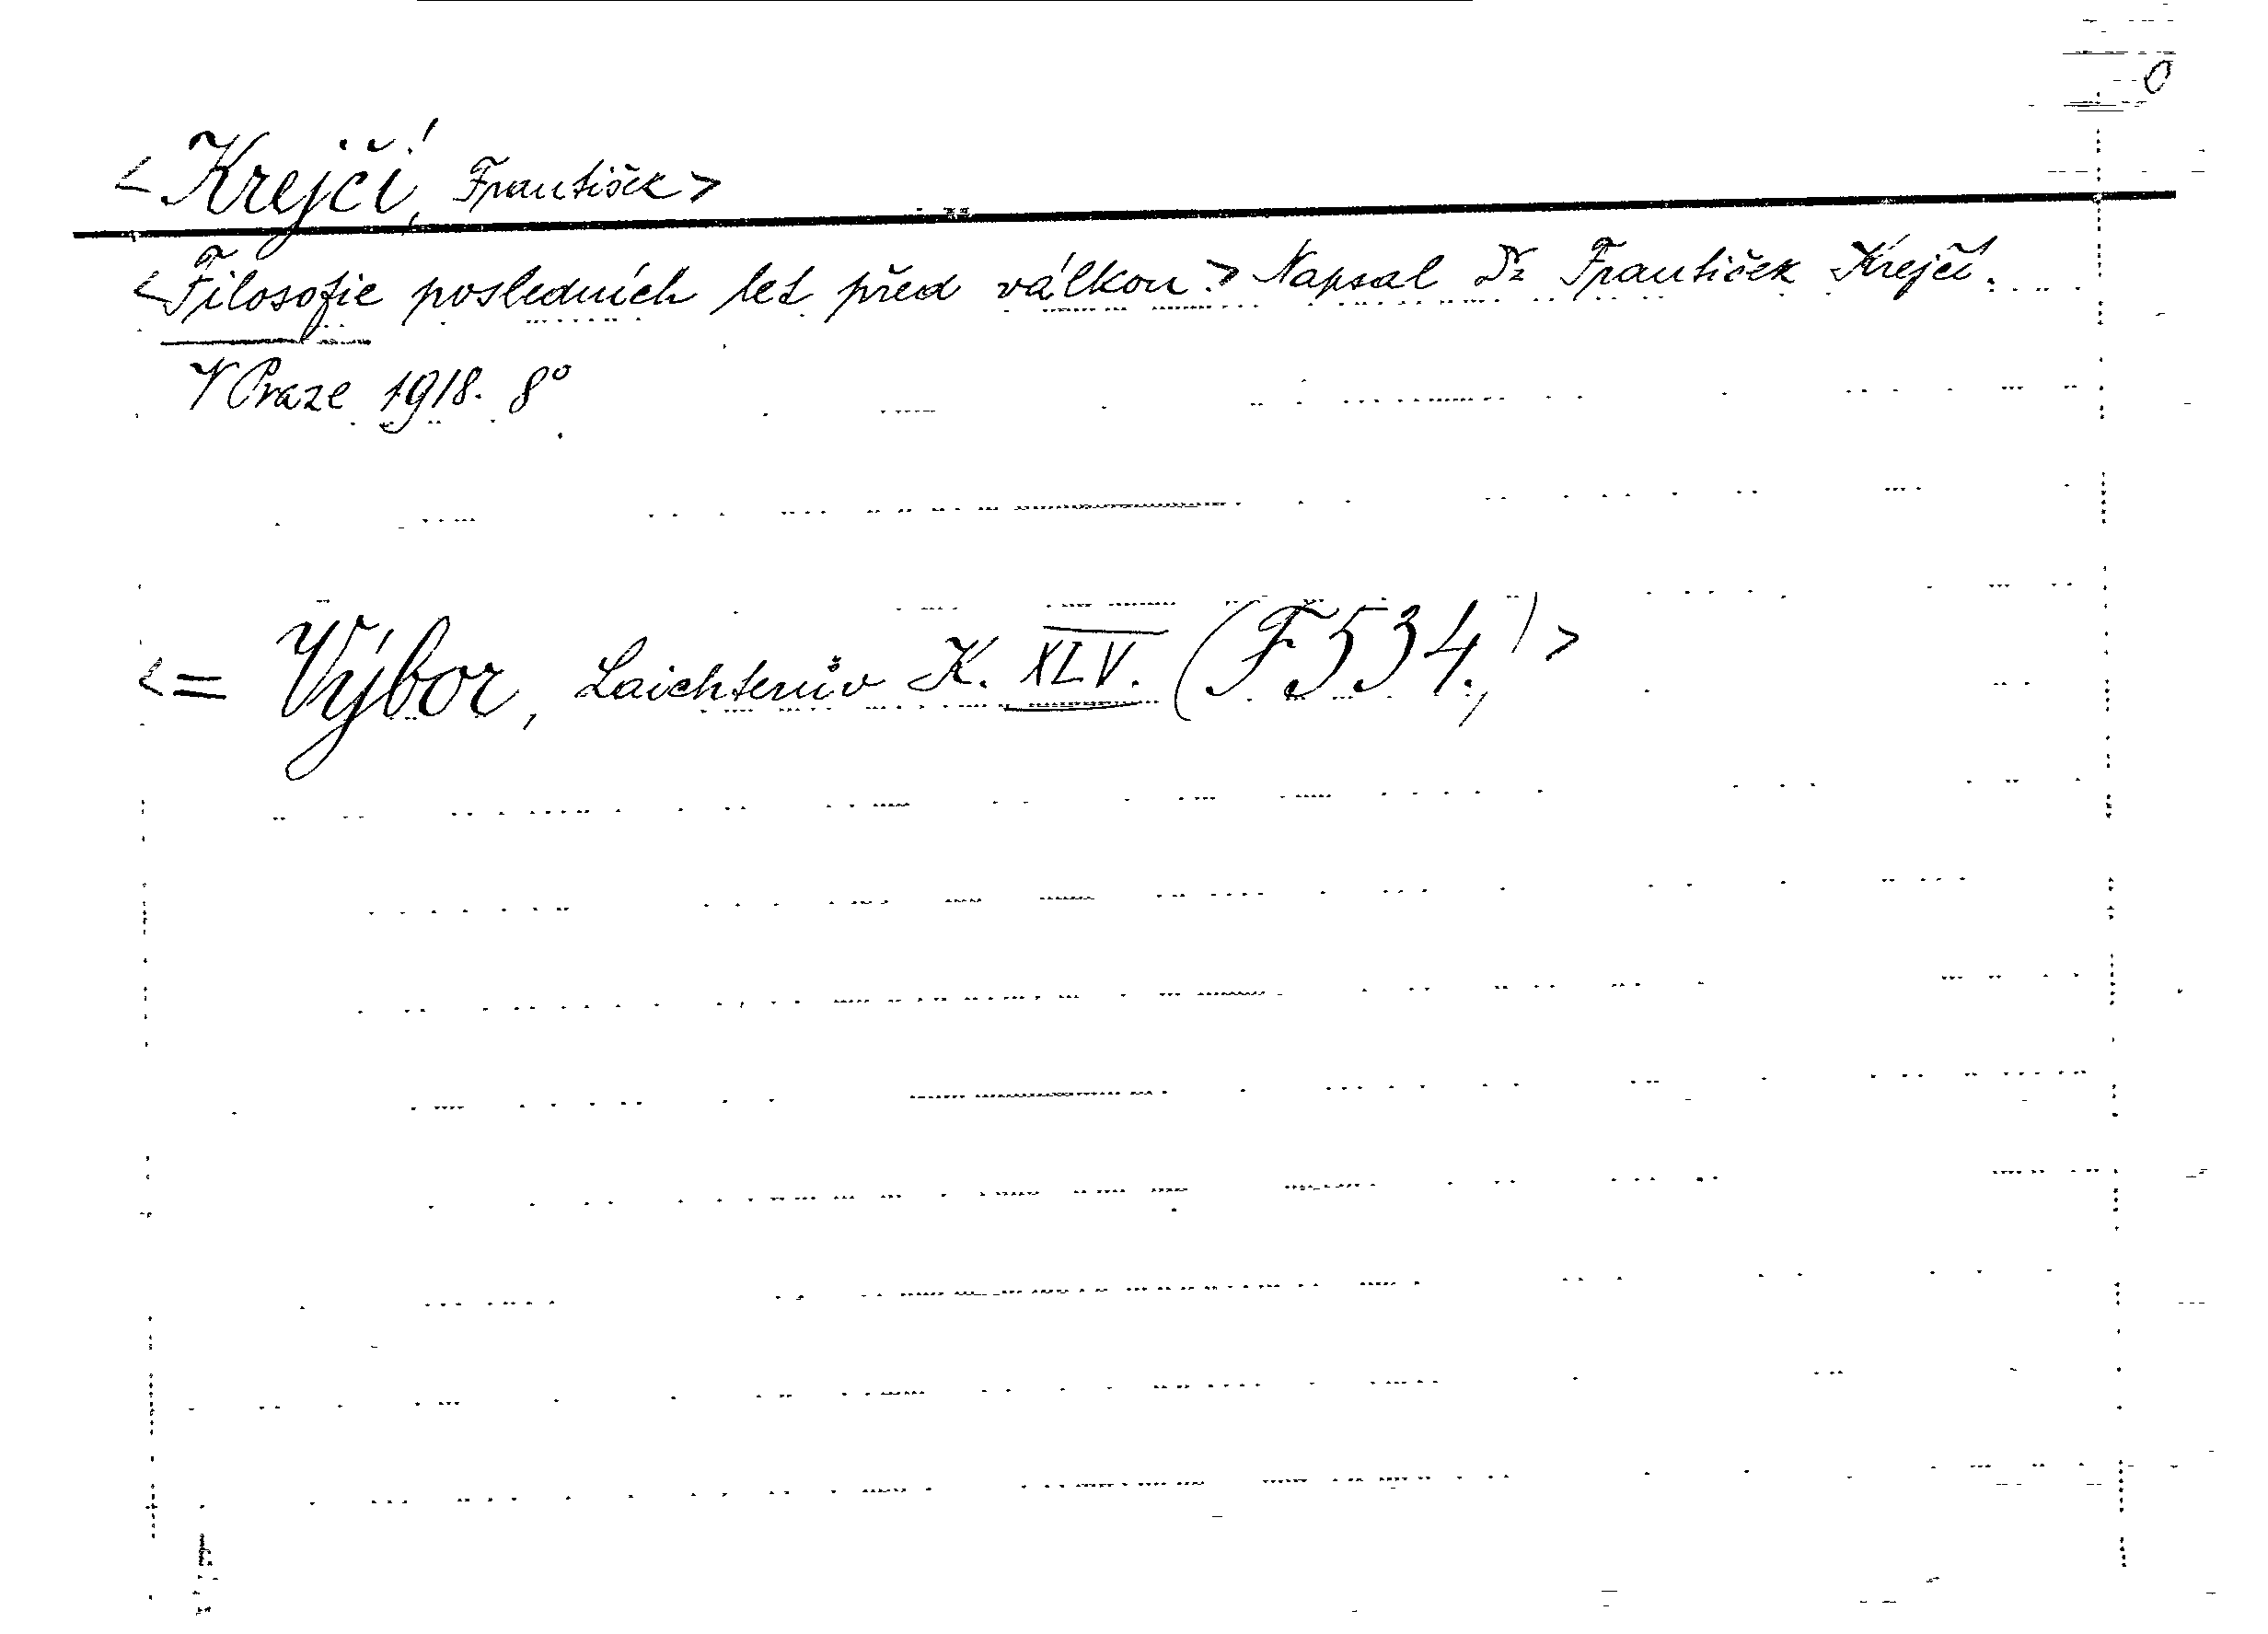 0
<Krejčí, František>
<Filosofie posledních let před válkou.> Napsal Dr František Krejčí.
V Praze 1918. 8°
<= Výbor, Laichterův K. XLV. (F 534.)>